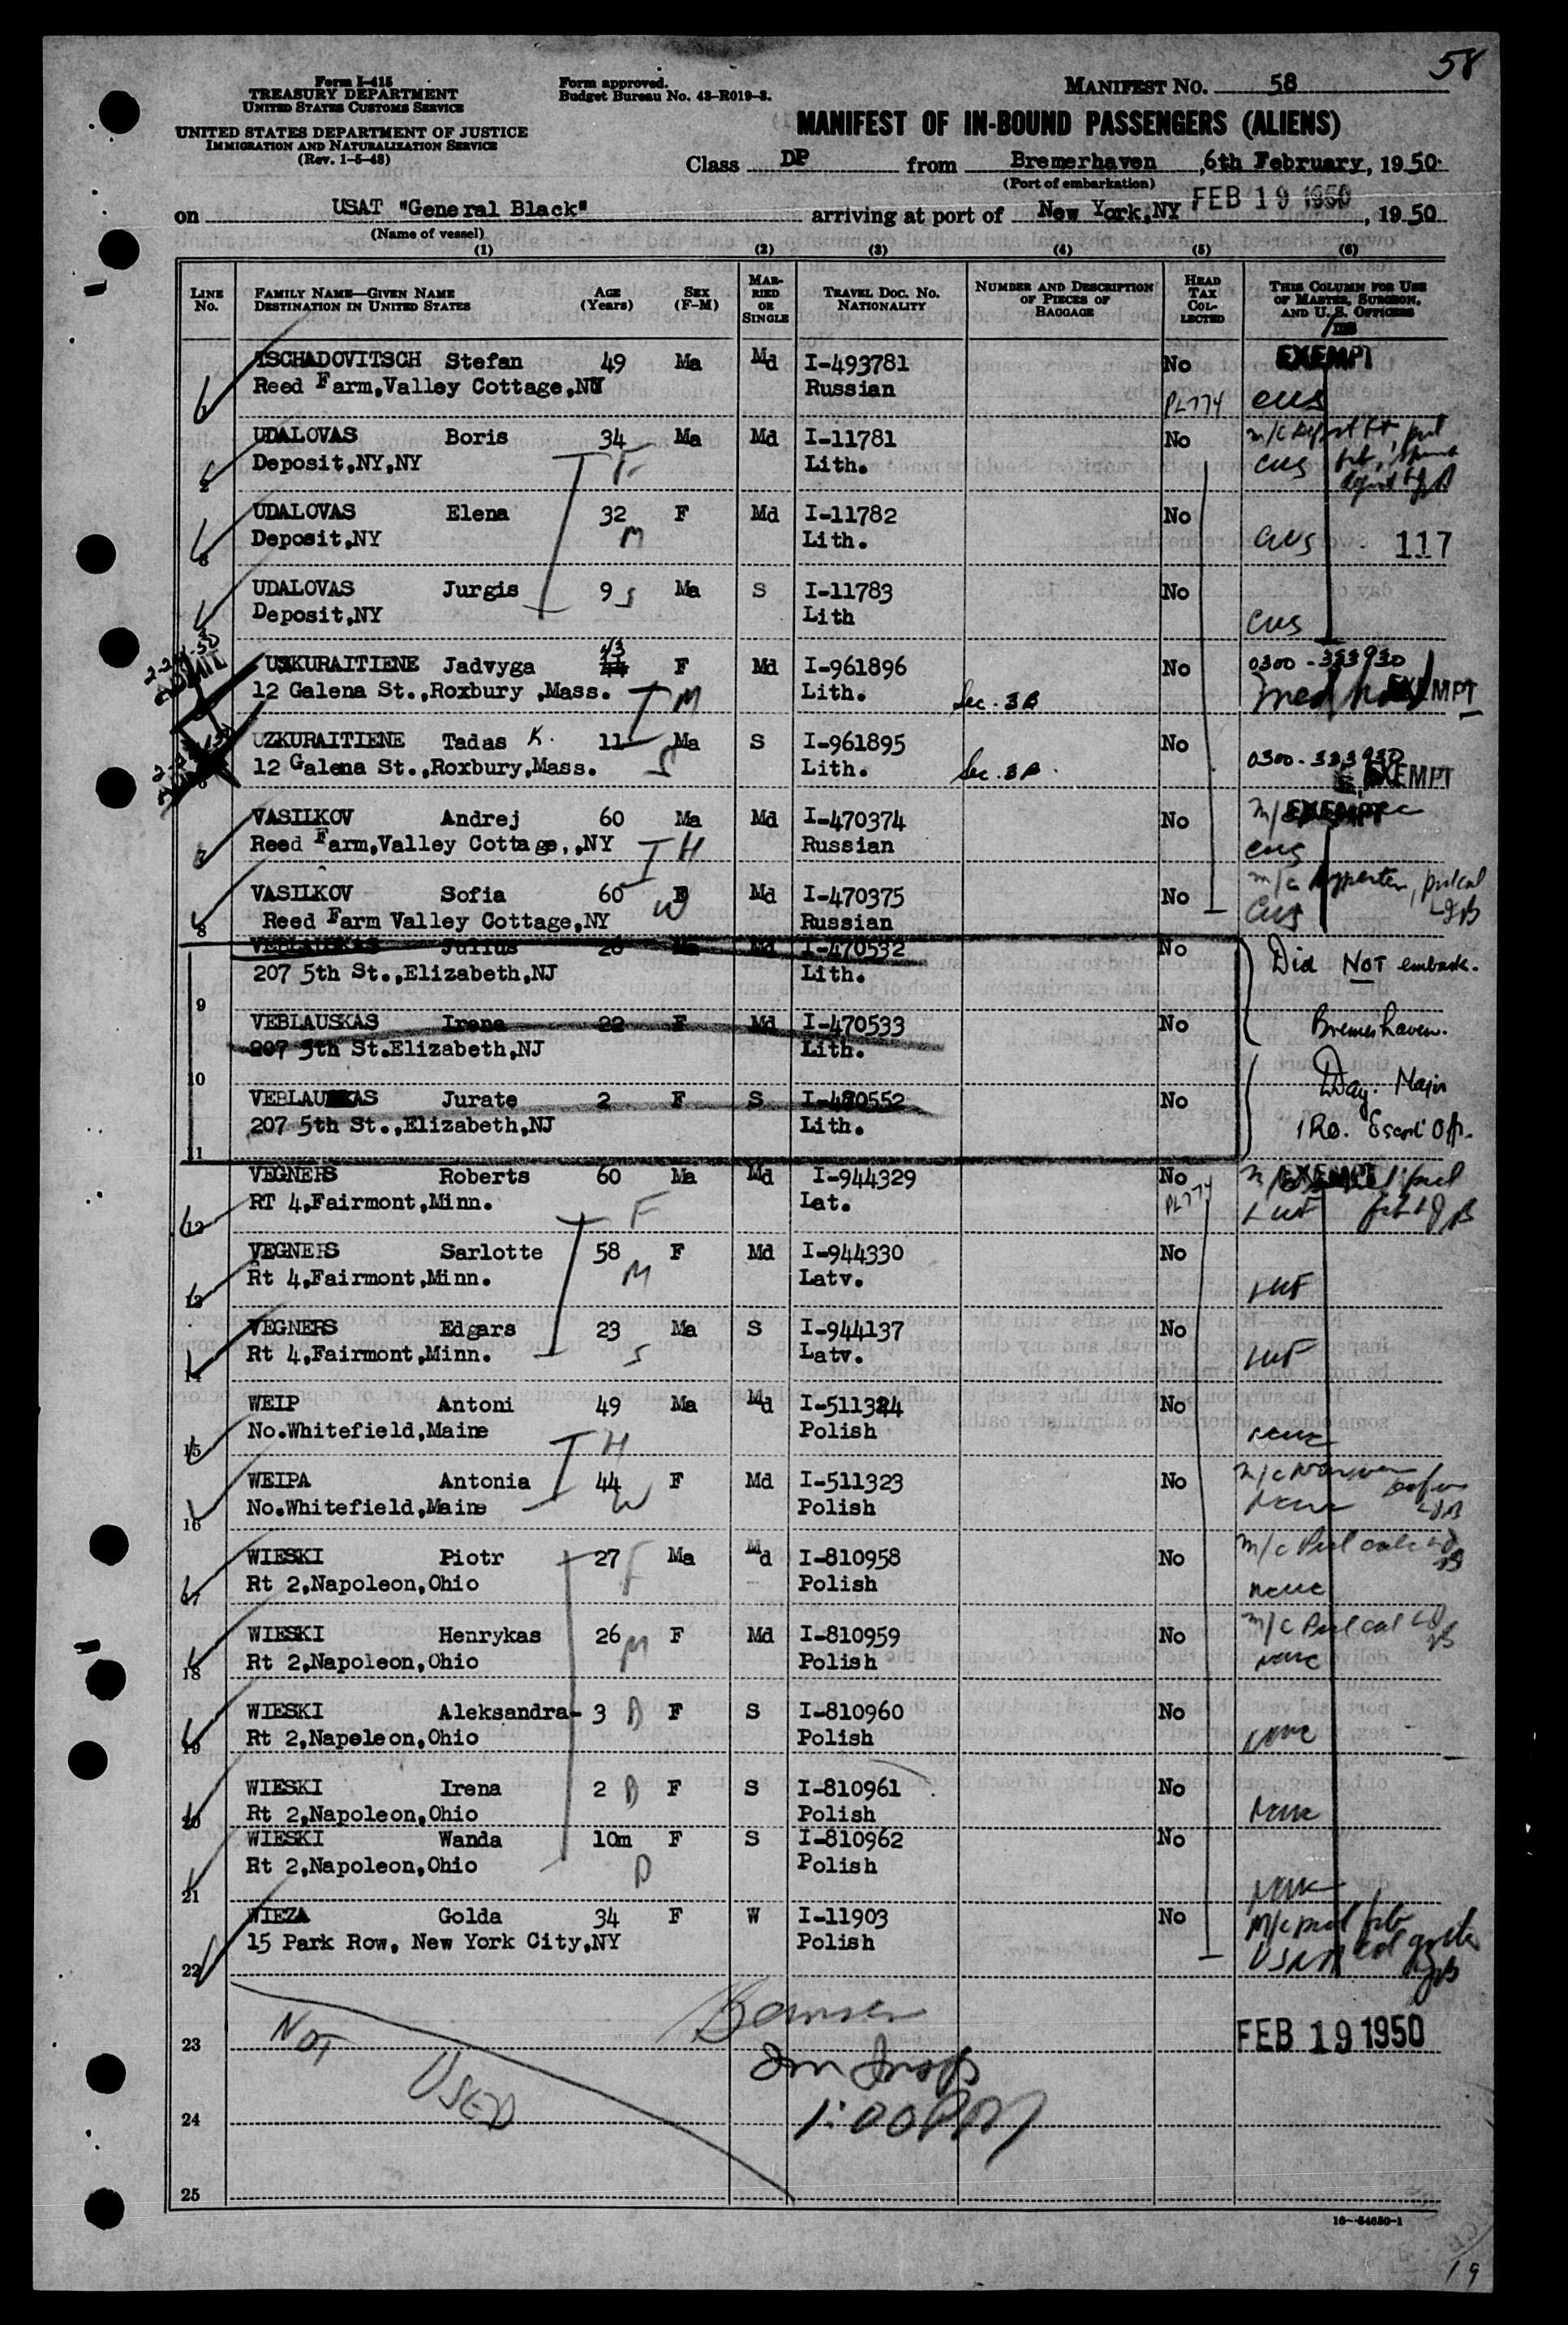 58
Form I-415
TREASURY DEPARTMENT
UNITED STATES CUSTOMS SERVICE
UNITED STATES DEPARTMENT OF JUSTICE
IMMIGRATION AND NATURALIZATION SERVICE
(Rev. 1-5-48)
Form approved.
Budget Bureau No. 43-R019-3.
MANIFEST NO. 58
MANIFEST OF IN-BOUND PASSENGERS (ALIENS)
Class DP from Bremerhaven, 6th February, 1950.
(Port of embarkation)
on USAT "General Black" arriving at port of New York,NY FEB 19 1950, 1950
(Name of vessel)
(1) (2) (3) (4) (5) (6)
LINE No. FAMILY NAME—GIVEN NAME DESTINATION IN UNITED STATES AGE (Years) SEX (F-M) MARRIED OR SINGLE TRAVEL DOC. NO. NATIONALITY NUMBER AND DESCRIPTION OF PIECES OF BAGGAGE HEAD TAX COLLECTED THIS COLUMN FOR USE OF MASTER, SURGEON, AND U. S. OFFICERS
TSCHADOVITSCH Stefan 49 Ma Md I-493781 No EXEMPT
Reed Farm,Valley Cottage,NY Russian PL774 cus
UDALOVAS Boris 34 Ma Md I-11781 No
2 Deposit,NY,NY F Lith. cus
UDALOVAS Elena 32 F Md I-11782 No
Deposit,NY M Lith. cus 117
UDALOVAS Jurgis 9 S Ma S I-11783 No
Deposit,NY Lith cus
UZKURAITIENE Jadvyga 43 44 F Md I-961896 No 0300-333930
12 Galena St.,Roxbury ,Mass. M Lith. Sec. 3A EXEMPT
UZKURAITIENE Tadas K. 11 Ma S I-961895 No
12 Galena St.,Roxbury,Mass. S Lith. Sec. 3A. 0300-333930 EXEMPT
VASILKOV Andrej 60 Ma Md I-470374 No EXEMPT
7 Reed Farm,Valley Cottage,,NY H Russian cus
VASILKOV Sofia 60 F Md I-470375 No
8 Reed Farm Valley Cottage,NY W Russian cus
VEBLAUSKAS Julius 26 Ma Md I-470532 No Did NOT embark.
9 207 5th St.,Elizabeth,NJ Lith.
VEBLAUSKAS Irena 22 F Md I-470533 No Bremerhaven.
10 207 5th St.Elizabeth,NJ Lith.
VEBLAUSKAS Jurate 2 F S I-470552 No Day. Major
11 207 5th St.,Elizabeth,NJ Lith. IRO. Escort Off.
VEGNERS Roberts 60 Ma Md I-944329 No EXEMPT
12 RT 4,Fairmont,Minn. F Lat. PL774 LWF
VEGNERS Sarlotte 58 F Md I-944330 No
13 Rt 4,Fairmont,Minn. M Latv. LWF
VEGNERS Edgars 23 Ma S I-944137 No
14 Rt 4,Fairmont,Minn. S Latv. LWF
WEIP Antoni 49 Ma Md I-511324 No
15 No.Whitefield,Maine H Polish NCWC
WEIPA Antonia 44 F Md I-511323 No
16 No.Whitefield,Maine W Polish NCWC
WIESKI Piotr 27 Ma Md I-810958 No
17 Rt 2,Napoleon,Ohio F Polish NCWC
WIESKI Henrykas 26 F Md I-810959 No
18 Rt 2,Napoleon,Ohio M Polish NCWC
WIESKI Aleksandra- 3 D F S I-810960 No
19 Rt 2,Napeleon,Ohio Polish NCWC
WIESKI Irena 2 D F S I-810961 No
20 Rt 2,Napoleon,Ohio Polish NCWC
WIESKI Wanda 10m F S I-810962 No
21 Rt 2,Napoleon,Ohio D Polish NCWC
WIEZA Golda 34 F W I-11903 No
22 15 Park Row, New York City,NY Polish USNA
23 NOT USED FEB 19 1950
24 1:00PM
25
16—54650-1
19